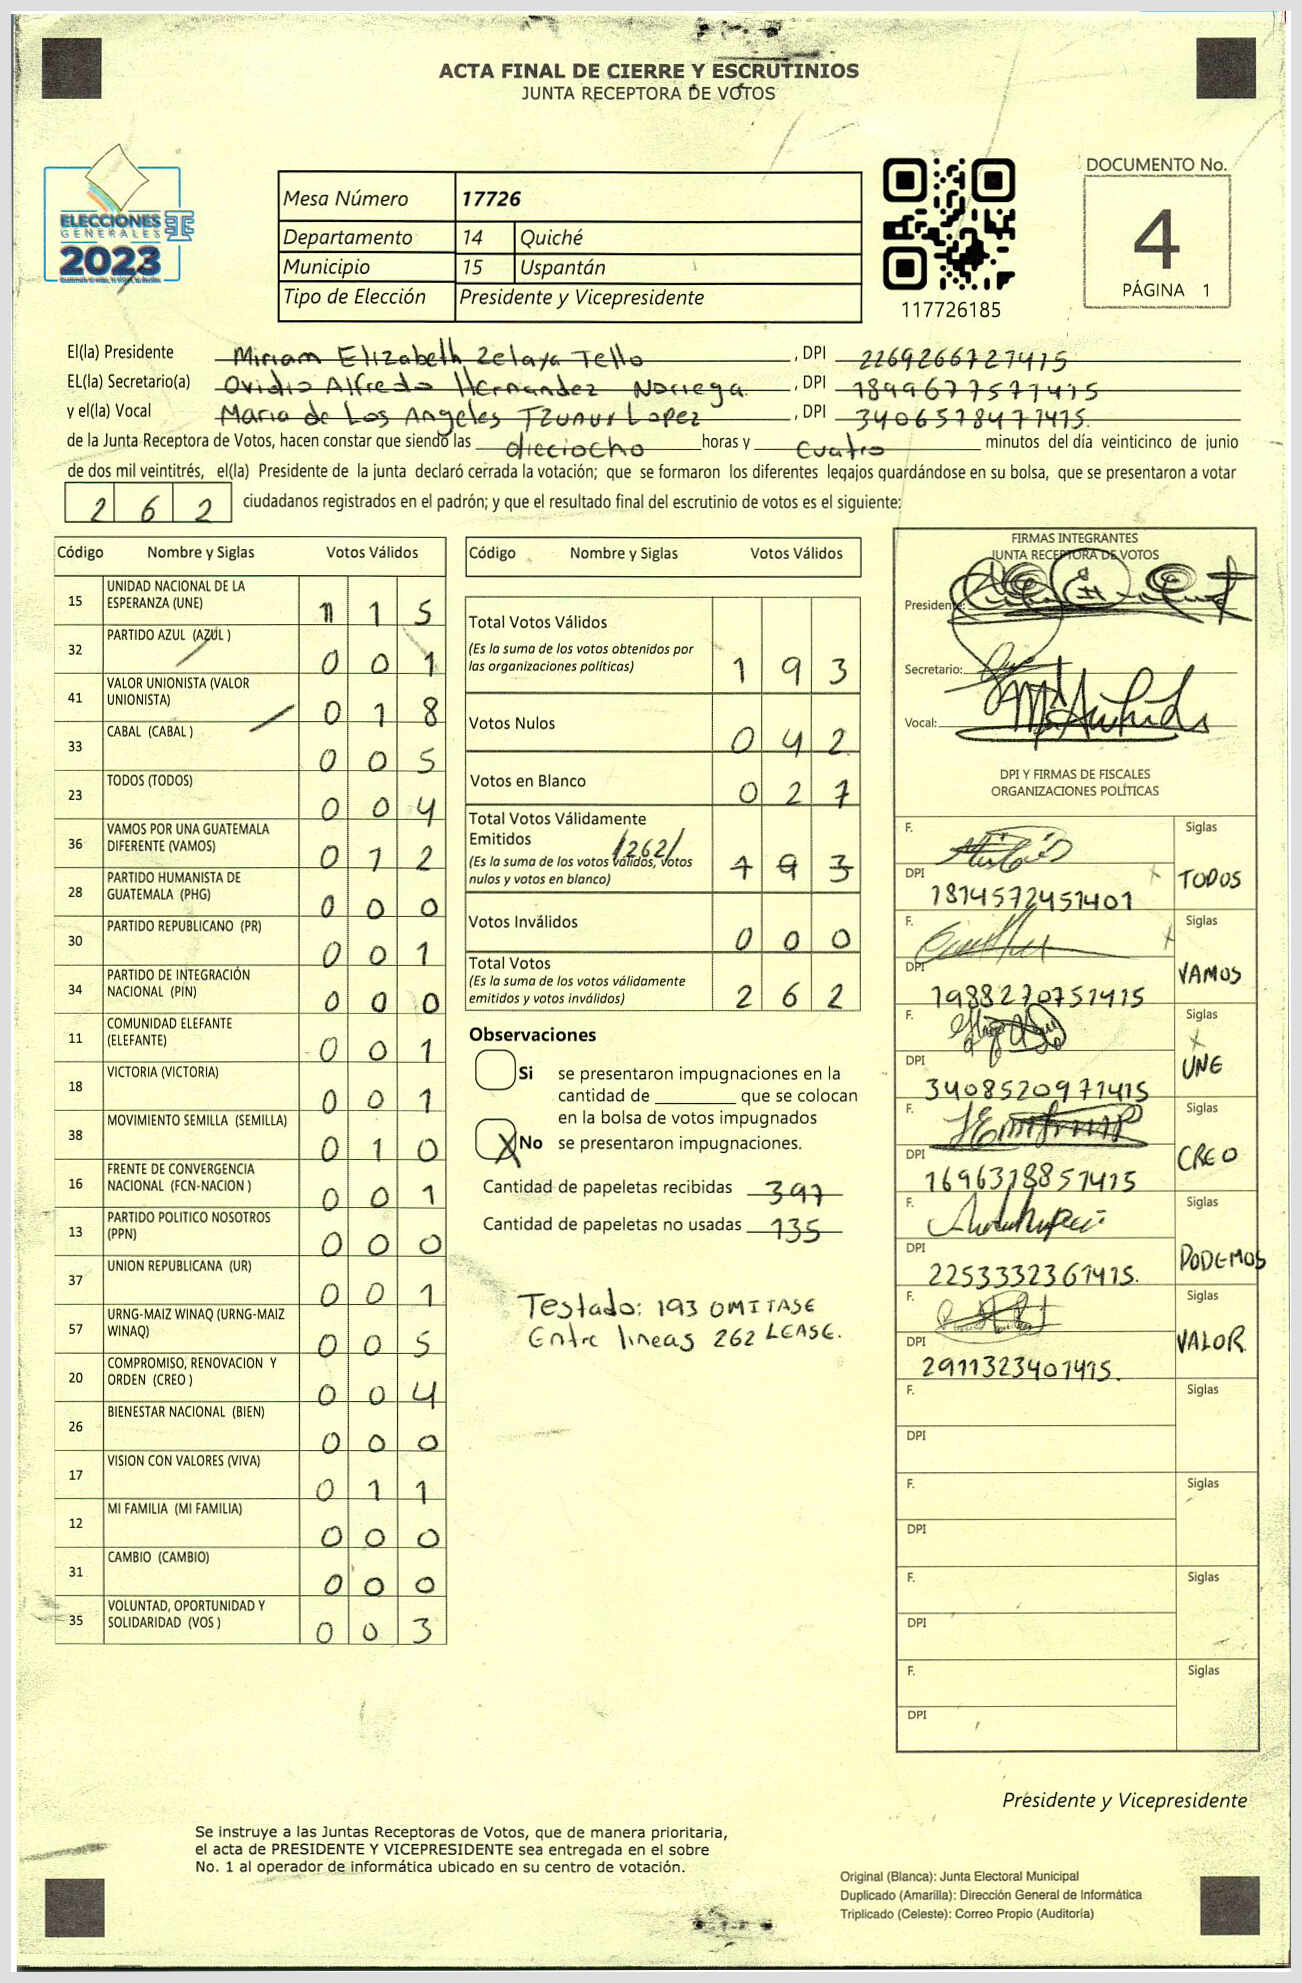 ACTA FINAL DE CIERRE Y ESCRUTINIOS
JUNTA RECEPTORA DE VOTOS
ELECCIONES
GENERALES
2023
Mesa Número 17726
Departamento 14 Quiché
Municipio 15 Uspantán
Tipo de Elección Presidente y Vicepresidente
117726185
DOCUMENTO No.
4
PÁGINA 1
El(la) Presidente Miriam Elizabeth Zelaya Tello, DPI 2269266721415
EL(la) Secretario(a) Ovidio Alfredo Hernandez Noriega, DPI 1899677571415
y el(la) Vocal Maria de Los Angeles Tzunux Lopez, DPI 3406578471415.
de la Junta Receptora de Votos, hacen constar que siendo las dieciocho horas y cuatro minutos del día veinticinco de junio
de dos mil veintitrés, el(la) Presidente de la junta declaró cerrada la votación; que se formaron los diferentes legajos guardándose en su bolsa, que se presentaron a votar
2 6 2 ciudadanos registrados en el padrón; y que el resultado final del escrutinio de votos es el siguiente:
Código Nombre y Siglas Votos Válidos
15 UNIDAD NACIONAL DE LA
ESPERANZA (UNE) 1 1 5
32 PARTIDO AZUL (AZUL ) 0 0 1
41 VALOR UNIONISTA (VALOR
UNIONISTA) 0 1 8
33 CABAL (CABAL ) 0 0 5
23 TODOS (TODOS) 0 0 4
36 VAMOS POR UNA GUATEMALA
DIFERENTE (VAMOS) 0 1 2
28 PARTIDO HUMANISTA DE
GUATEMALA (PHG) 0 0 0
30 PARTIDO REPUBLICANO (PR) 0 0 1
34 PARTIDO DE INTEGRACIÓN
NACIONAL (PIN) 0 0 0
11 COMUNIDAD ELEFANTE
(ELEFANTE) 0 0 1
18 VICTORIA (VICTORIA) 0 0 1
38 MOVIMIENTO SEMILLA (SEMILLA) 0 1 0
16 FRENTE DE CONVERGENCIA
NACIONAL (FCN-NACION ) 0 0 1
13 PARTIDO POLITICO NOSOTROS
(PPN) 0 0 0
37 UNION REPUBLICANA (UR) 0 0 1
57 URNG-MAIZ WINAQ (URNG-MAIZ
WINAQ) 0 0 5
20 COMPROMISO, RENOVACION Y
ORDEN (CREO ) 0 0 4
26 BIENESTAR NACIONAL (BIEN) 0 0 0
17 VISION CON VALORES (VIVA) 0 1 1
12 MI FAMILIA (MI FAMILIA) 0 0 0
31 CAMBIO (CAMBIO) 0 0 0
35 VOLUNTAD, OPORTUNIDAD Y
SOLIDARIDAD (VOS ) 0 0 3
Código Nombre y Siglas Votos Válidos
Total Votos Válidos
(Es la suma de los votos obtenidos por
las organizaciones políticas) 1 9 3
Votos Nulos 0 4 2
Votos en Blanco 0 2 7
Total Votos Válidamente
Emitidos /262/
(Es la suma de los votos válidos, votos
nulos y votos en blanco) 1 9 3
Votos Inválidos 0 0 0
Total Votos
(Es la suma de los votos válidamente
emitidos y votos inválidos) 2 6 2
Observaciones
Si se presentaron impugnaciones en la
cantidad de ________ que se colocan
en la bolsa de votos impugnados
X No se presentaron impugnaciones.
Cantidad de papeletas recibidas 397
Cantidad de papeletas no usadas 135
Testado: 193 OMITASE
Entre lineas 262 LEASE.
FIRMAS INTEGRANTES
JUNTA RECEPTORA DE VOTOS
Presidente:
Secretario:
Vocal:
DPI Y FIRMAS DE FISCALES
ORGANIZACIONES POLÍTICAS
F. Siglas
DPI 1814572451401 TODOS
F. Siglas
DPI 1988270751415 VAMOS
F. Siglas
DPI 3408520971415 UNE
F. Siglas
DPI 1696318851415 CREO
F. Siglas
DPI 2253332361415. PODEMOS
F. Siglas
DPI 2911323401415. VALOR
F. Siglas
DPI
F. Siglas
DPI
F. Siglas
DPI
F. Siglas
DPI
Presidente y Vicepresidente
Se instruye a las Juntas Receptoras de Votos, que de manera prioritaria,
el acta de PRESIDENTE Y VICEPRESIDENTE sea entregada en el sobre
No. 1 al operador de informática ubicado en su centro de votación.
Original (Blanca): Junta Electoral Municipal
Duplicado (Amarilla): Dirección General de Informática
Triplicado (Celeste): Correo Propio (Auditoría)